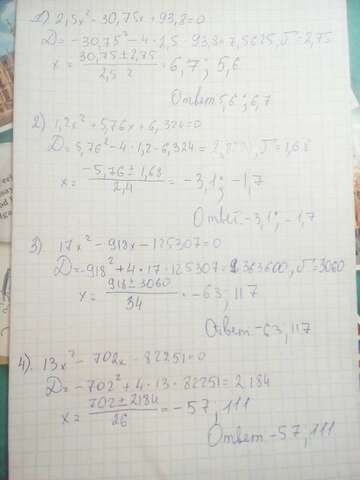 1) 2,5x² - 30,75x + 93,8 = 0
D = -30,75² - 4 · 2,5 · 93,8 = 7,5625, √ = 2,75
x = (30,75 ± 2,75) / (2,5 · 2) = 6,7 ; 5,6
Ответ 5,6 ; 6,7
2) 1,2x² + 5,76x + 6,324 = 0
D = 5,76² - 4 · 1,2 · 6,324 = √ = 1,68
x = (-5,76 ± 1,68) / 2,4 = -3,1 ; -1,7
Ответ -3,1 ; -1,7
3) 17x² - 918x - 125307 = 0
D = -918² + 4 · 17 · 125307 = 9363600, √ = 3060
x = (918 ± 3060) / 34 = -63 ; 117
Ответ -63, 117
4) 13x² - 702x - 82251 = 0
D = -702² + 4 · 13 · 82251 = 2184
x = (702 ± 2184) / 26 = -57, 111
Ответ -57, 111